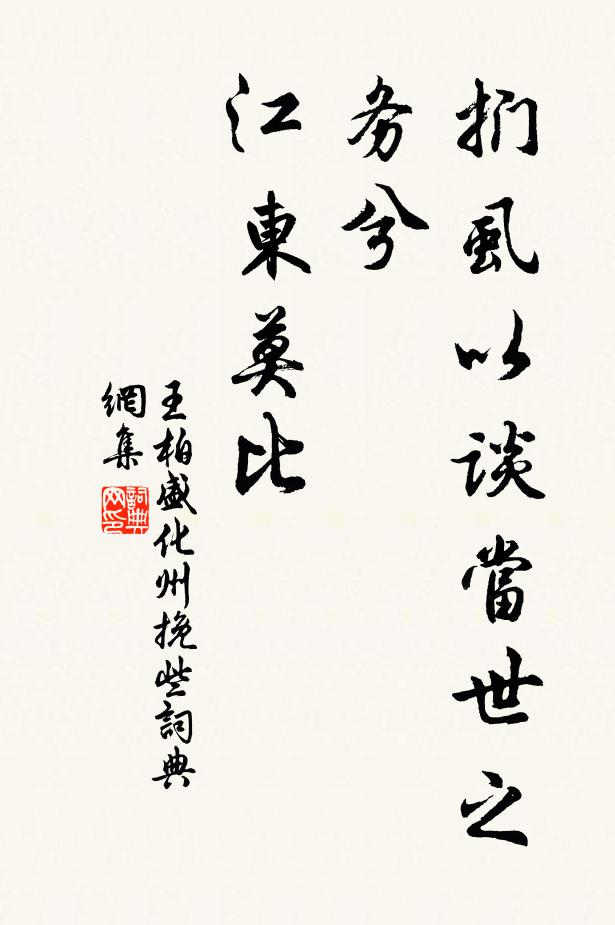 捫虱以談當世之
务兮
江東莫比
王柏盛化州挽些詞典
網集
詞典
网印